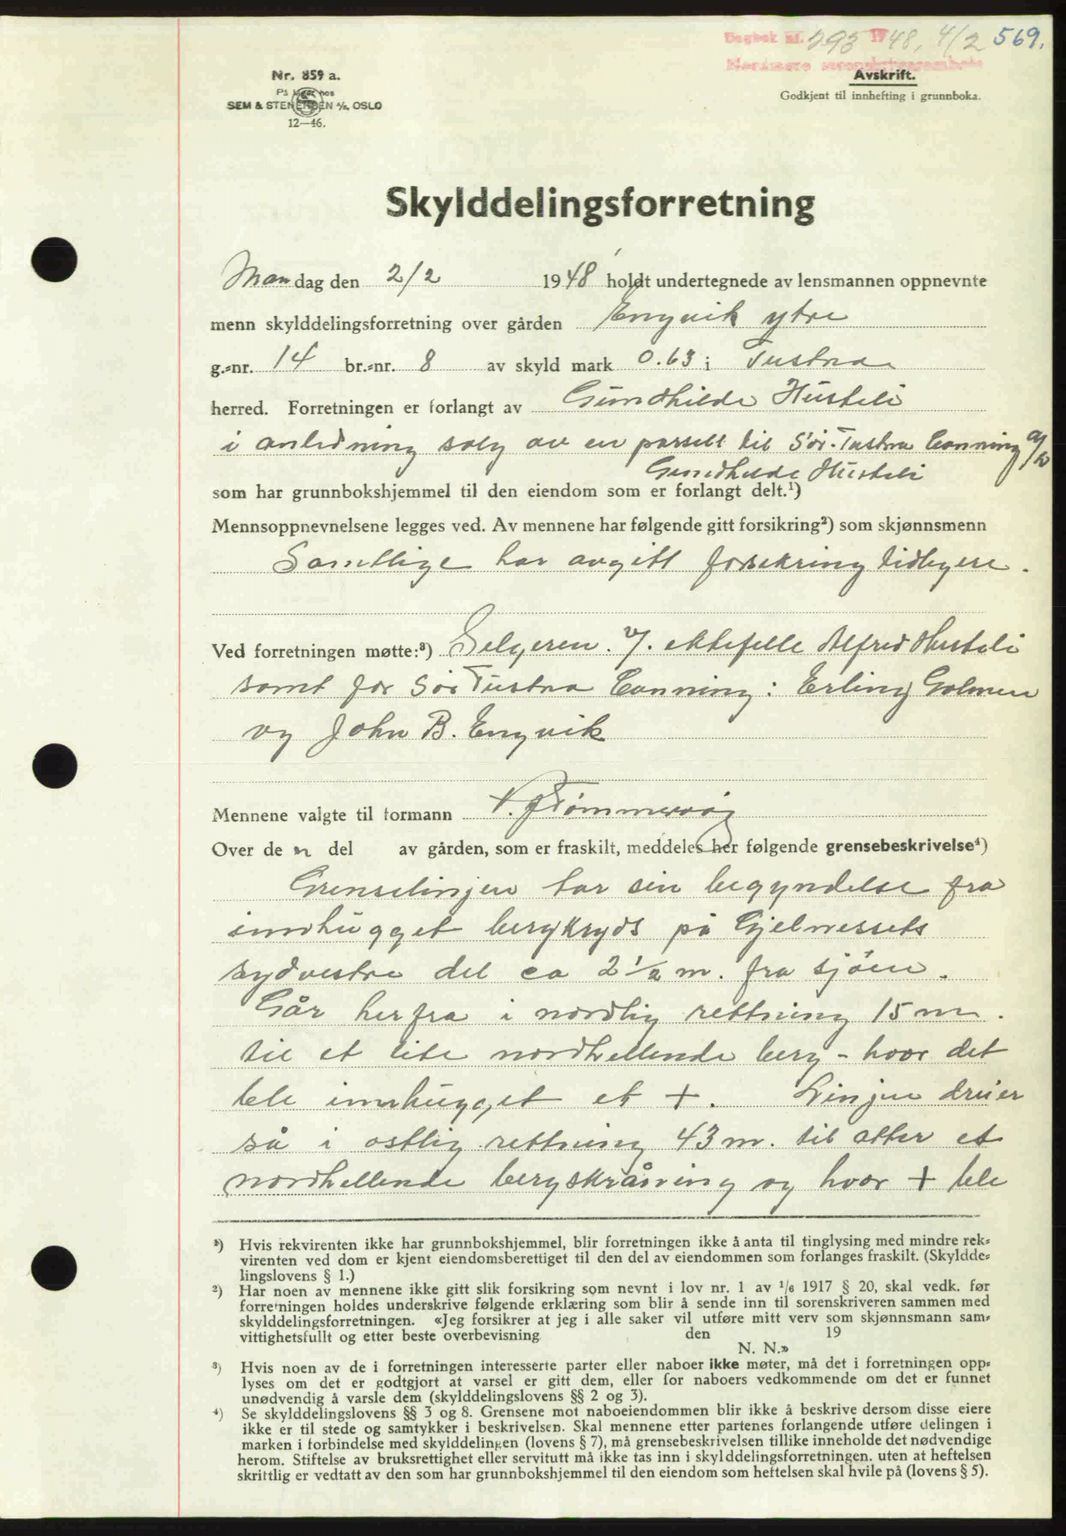 Dagbok nr. 293 1948, 4/2 569.
Nordmøre sorenskriverembete
Nr. 859 a.
På lager hos
SEM & STENERSEN A/S, OSLO
12—46.
Avskrift.
Godkjent til innhefting i grunnboka.
Skylddelingsforretning
Mandag den 2/2 1948 holdt undertegnede av lensmannen oppnevnte
menn skylddelingsforretning over gården Engvik ytre
g.-nr. 14 br.-nr. 8 av skyld mark 0.63 i Tustna
herred. Forretningen er forlangt av Gundhilde Husteli
i anledning salg av en parsell til Sör-Tustna Canning a/s
Gundhilde Husteli
som har grunnbokshjemmel til den eiendom som er forlangt delt.¹)
Mennsoppnevnelsene legges ved. Av mennene har følgende gitt forsikring²) som skjønnsmenn
Samtlige har avgitt forsikring tidligere.
Ved forretningen møtte:³) Selgeren v/. ektefelle Alfred Husteli
samt for Sör Tustna Canning: Erling Golmen
og John B. Engvik
Mennene valgte til formann N. Tömmervåg
Over den del av gården, som er fraskilt, meddeles her følgende grensebeskrivelse⁴)
Grenselinjen tar sin begyndelse fra
innhugget bergkryds på Gjelnessets
sydvestre del ca 2 1/2 m. fra sjöen.
Går herfra i nordlig rettning 15 m.
til et lite nordhellende berg - hvor det
ble innhugget et +. Linjen dreier
så i ostlig rettning 43 m. til atter et
nordhellende bergskråning og hvor + ble
¹) Hvis rekvirenten ikke har grunnbokshjemmel, blir forretningen ikke å anta til tinglysing med mindre rek-
virenten ved dom er kjent eiendomsberettiget til den del av eiendommen som forlanges fraskilt. (Skyldde-
lingslovens § 1.)
²) Har noen av mennene ikke gitt slik forsikring som nevnt i lov nr. 1 av 1/6 1917 § 20, skal vedk. før
forretningen holdes underskrive følgende erklæring som blir å sende inn til sorenskriveren sammen med
skylddelingsforretningen. «Jeg forsikrer at jeg i alle saker vil utføre mitt verv som skjønnsmann sam-
vittighetsfullt og etter beste overbevisning den 19
N. N.»
³) Hvis noen av de i forretningen interesserte parter eller naboer ikke møter, må det i forretningen opp-
lyses om det er godtgjort at varsel er gitt dem, eller for naboers vedkommende om det er funnet
unødvendig å varsle dem (skylddelingslovens §§ 2 og 3).
⁴) Se skylddelingslovens §§ 3 og 8. Grensene mot naboeiendommen blir ikke å beskrive dersom disse eiere
ikke er til stede og samtykker i beskrivelsen. Skal mennene etter partenes forlangende utføre delingen i
marken i forbindelse med skylddelingen (lovens § 7), må grensebeskrivelsen tillike inneholde det nødvendige
herom. Stiftelse av bruksrettighet eller servitutt må ikke tas inn i skylddelingsforretningen. uten at heftelsen
skriftlig er vedtatt av den som har grunnbokshjemmel til den eiendom som heftelsen skal hvile på (lovens § 5).